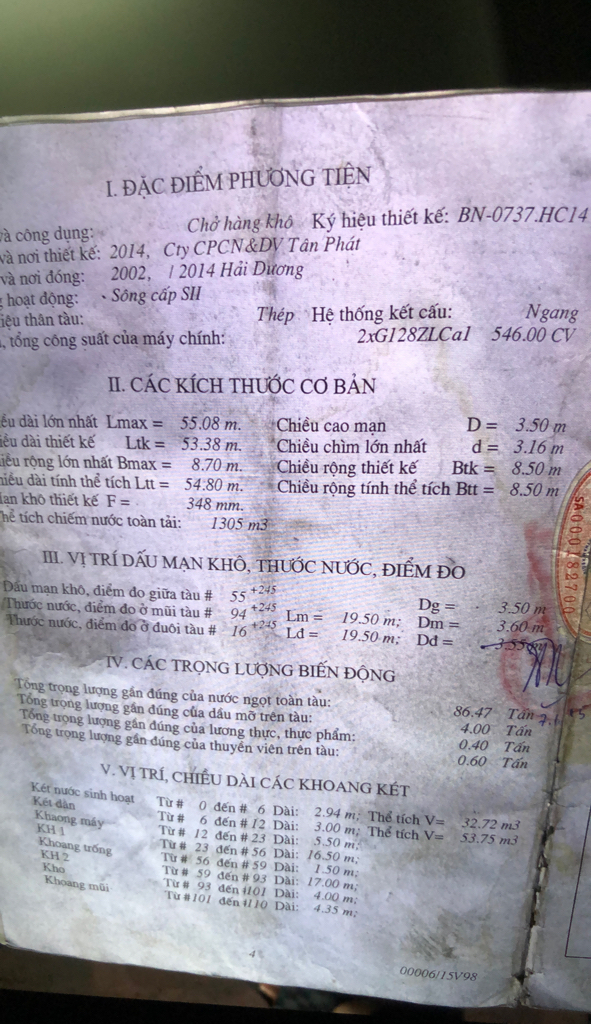 I. ĐẶC ĐIỂM PHƯƠNG TIỆN
và công dụng: Chở hàng khô Ký hiệu thiết kế: BN-0737.HC14
và nơi thiết kế: 2014, Cty CPCN&DV Tân Phát
và nơi đóng: 2002, / 2014 Hải Dương
hoạt động: Sông cấp SII
iệu thân tàu: Thép Hệ thống kết cấu: Ngang
, tổng công suất của máy chính: 2xG128ZLCa1 546.00 CV
II. CÁC KÍCH THƯỚC CƠ BẢN
ều dài lớn nhất Lmax = 55.08 m. Chiều cao mạn D = 3.50 m
iều dài thiết kế Ltk = 53.38 m. Chiều chìm lớn nhất d = 3.16 m
iều rộng lớn nhất Bmax = 8.70 m. Chiều rộng thiết kế Btk = 8.50 m
hiều dài tính thể tích Ltt = 54.80 m. Chiều rộng tính thể tích Btt = 8.50 m
ạn khô thiết kế F = 348 mm.
hể tích chiếm nước toàn tải: 1305 m3
III. VỊ TRÍ DẤU MẠN KHÔ, THƯỚC NƯỚC, ĐIỂM ĐO
Dấu mạn khô, điểm đo giữa tàu # 55 +245 Dg = 3.50 m
Thước nước, điểm đo ở mũi tàu # 94 +245 Lm = 19.50 m; Dm = 3.60 m
Thước nước, điểm đo ở đuôi tàu # 16 +245 Lđ = 19.50 m; Dđ = 3.55 m
IV. CÁC TRỌNG LƯỢNG BIẾN ĐỘNG
Tổng trọng lượng gần đúng của nước ngọt toàn tàu: 86.47 Tấn
Tổng trọng lượng gần đúng của dầu mỡ trên tàu: 4.00 Tấn
Tổng trọng lượng gần đúng của lương thực, thực phẩm: 0.40 Tấn
Tổng trọng lượng gần đúng của thuyền viên trên tàu: 0.60 Tấn
V. VỊ TRÍ, CHIỀU DÀI CÁC KHOANG KÉT
Két nước sinh hoạt Từ # 0 đến # 6 Dài: 2.94 m; Thể tích V= 32.72 m3
Két dằn Từ # 6 đến # 12 Dài: 3.00 m; Thể tích V= 53.75 m3
Khaong máy Từ # 12 đến # 23 Dài: 5.50 m;
KH 1 Từ # 23 đến # 56 Dài: 16.50 m;
Khoang trống Từ # 56 đến # 59 Dài: 1.50 m;
KH 2 Từ # 59 đến # 93 Dài: 17.00 m;
Kho Từ # 93 đến #101 Dài: 4.00 m;
Khoang mũi Từ #101 đến #110 Dài: 4.35 m;
4
00006/15V98
SA000182700